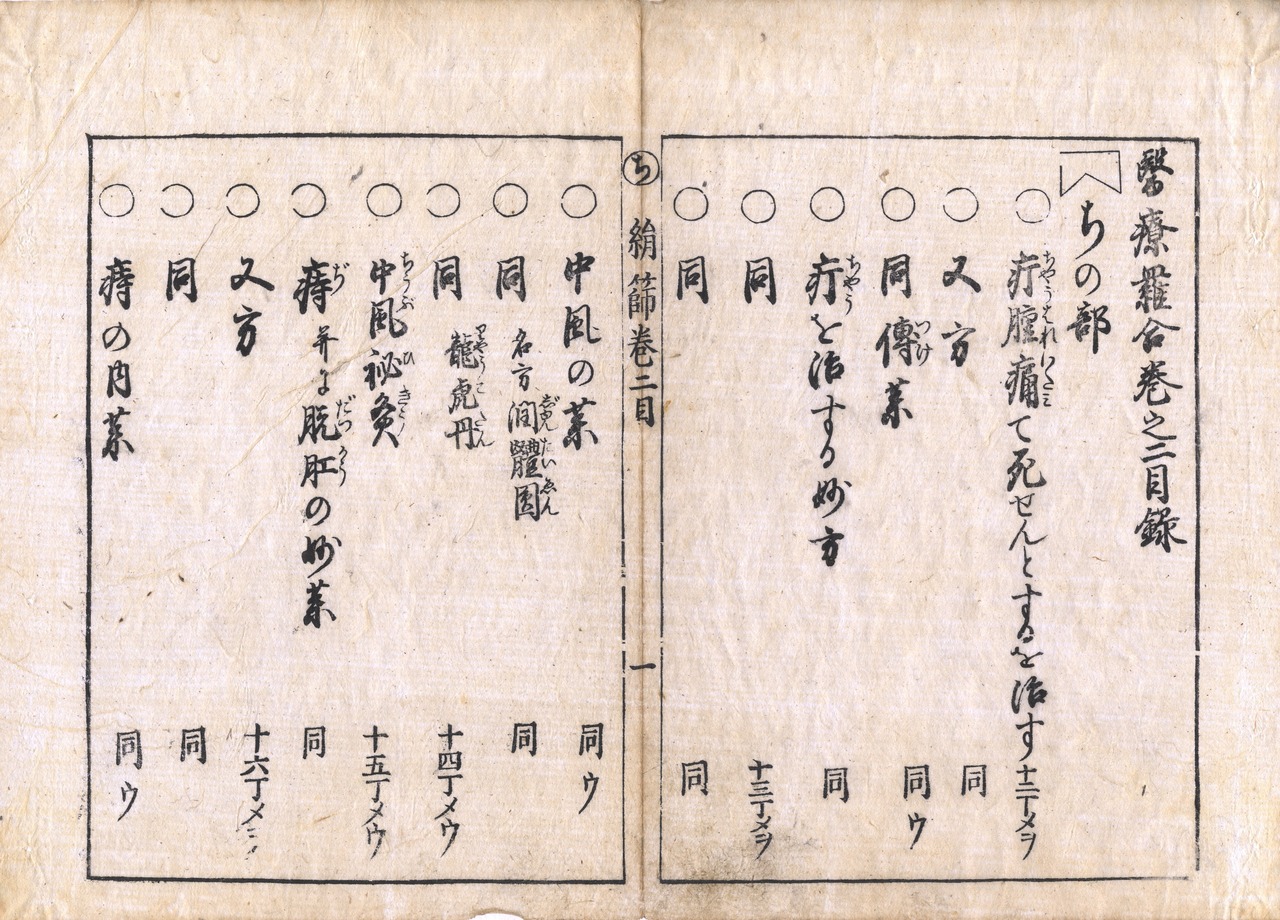 醫療羅合巻之二目録
ちの部
○ 疔腫痛て死せんとするを治す 十二丁メヲ
○ 又方 同
○ 同傳薬 同ウ
○ 疔を治する妙方 同
○ 同 十三丁メヲ
○ 同 同
ち 絹篩巻二目 一
○ 中風の薬 同ウ
○ 同 名方潤體圓 同
○ 同 龍虎丹 十四丁メウ
○ 中風祕灸 十五丁メウ
○ 痔并に脱肛の妙薬 同
○ 又方 十六丁メ
○ 同 同
○ 痔の内薬 同ウ